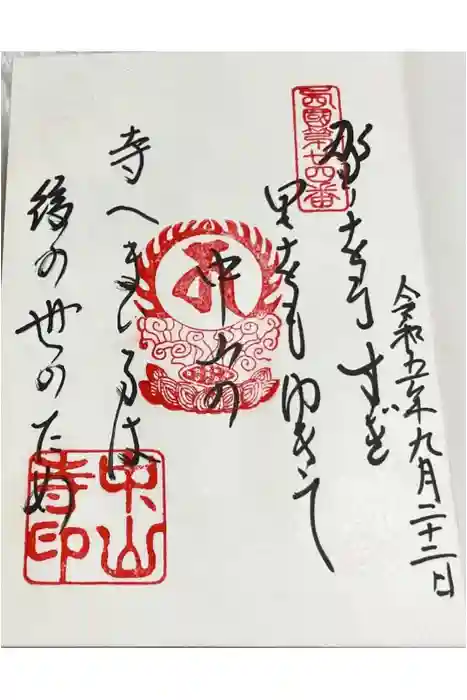 令和五年九月二十二日
西國第廿四番
野をもすぎ
里をもゆきて
中山の
寺へまいるは
後の世のため
中山
寺印